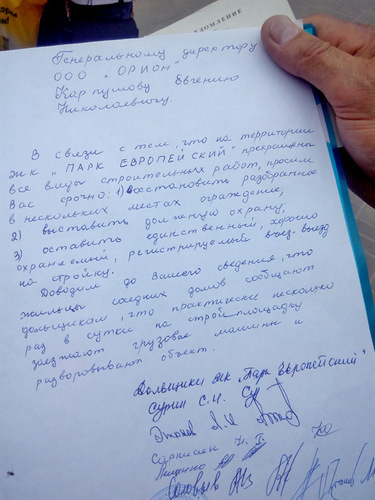 Генеральному директору
ООО "ОРИОН"
Карпумову Евгению
Николаевичу.
В связи с тем, что на территории
жк "ПАРК ЕВРОПЕЙСКИЙ" прекращены
все виды строительных работ, просим
Вас срочно: 1) восстановить разобранное
в нескольких местах ограждение,
2) выставить должную охрану,
3) оставить единственный, хорошо
охраняемый, регистрируемый въезд-выезд
на стройку.
Доводим до Вашего сведения, что
жильцы соседних домов сообщают
дольщикам, что практически несколько
раз в сутки на стройплощадку
заезжают грузовые машины и
разворовывают объект.
Дольщики жк "Парк Европейский"
Сурин С.И.
Саркисян К.Г.
Ищенко
Соловьев